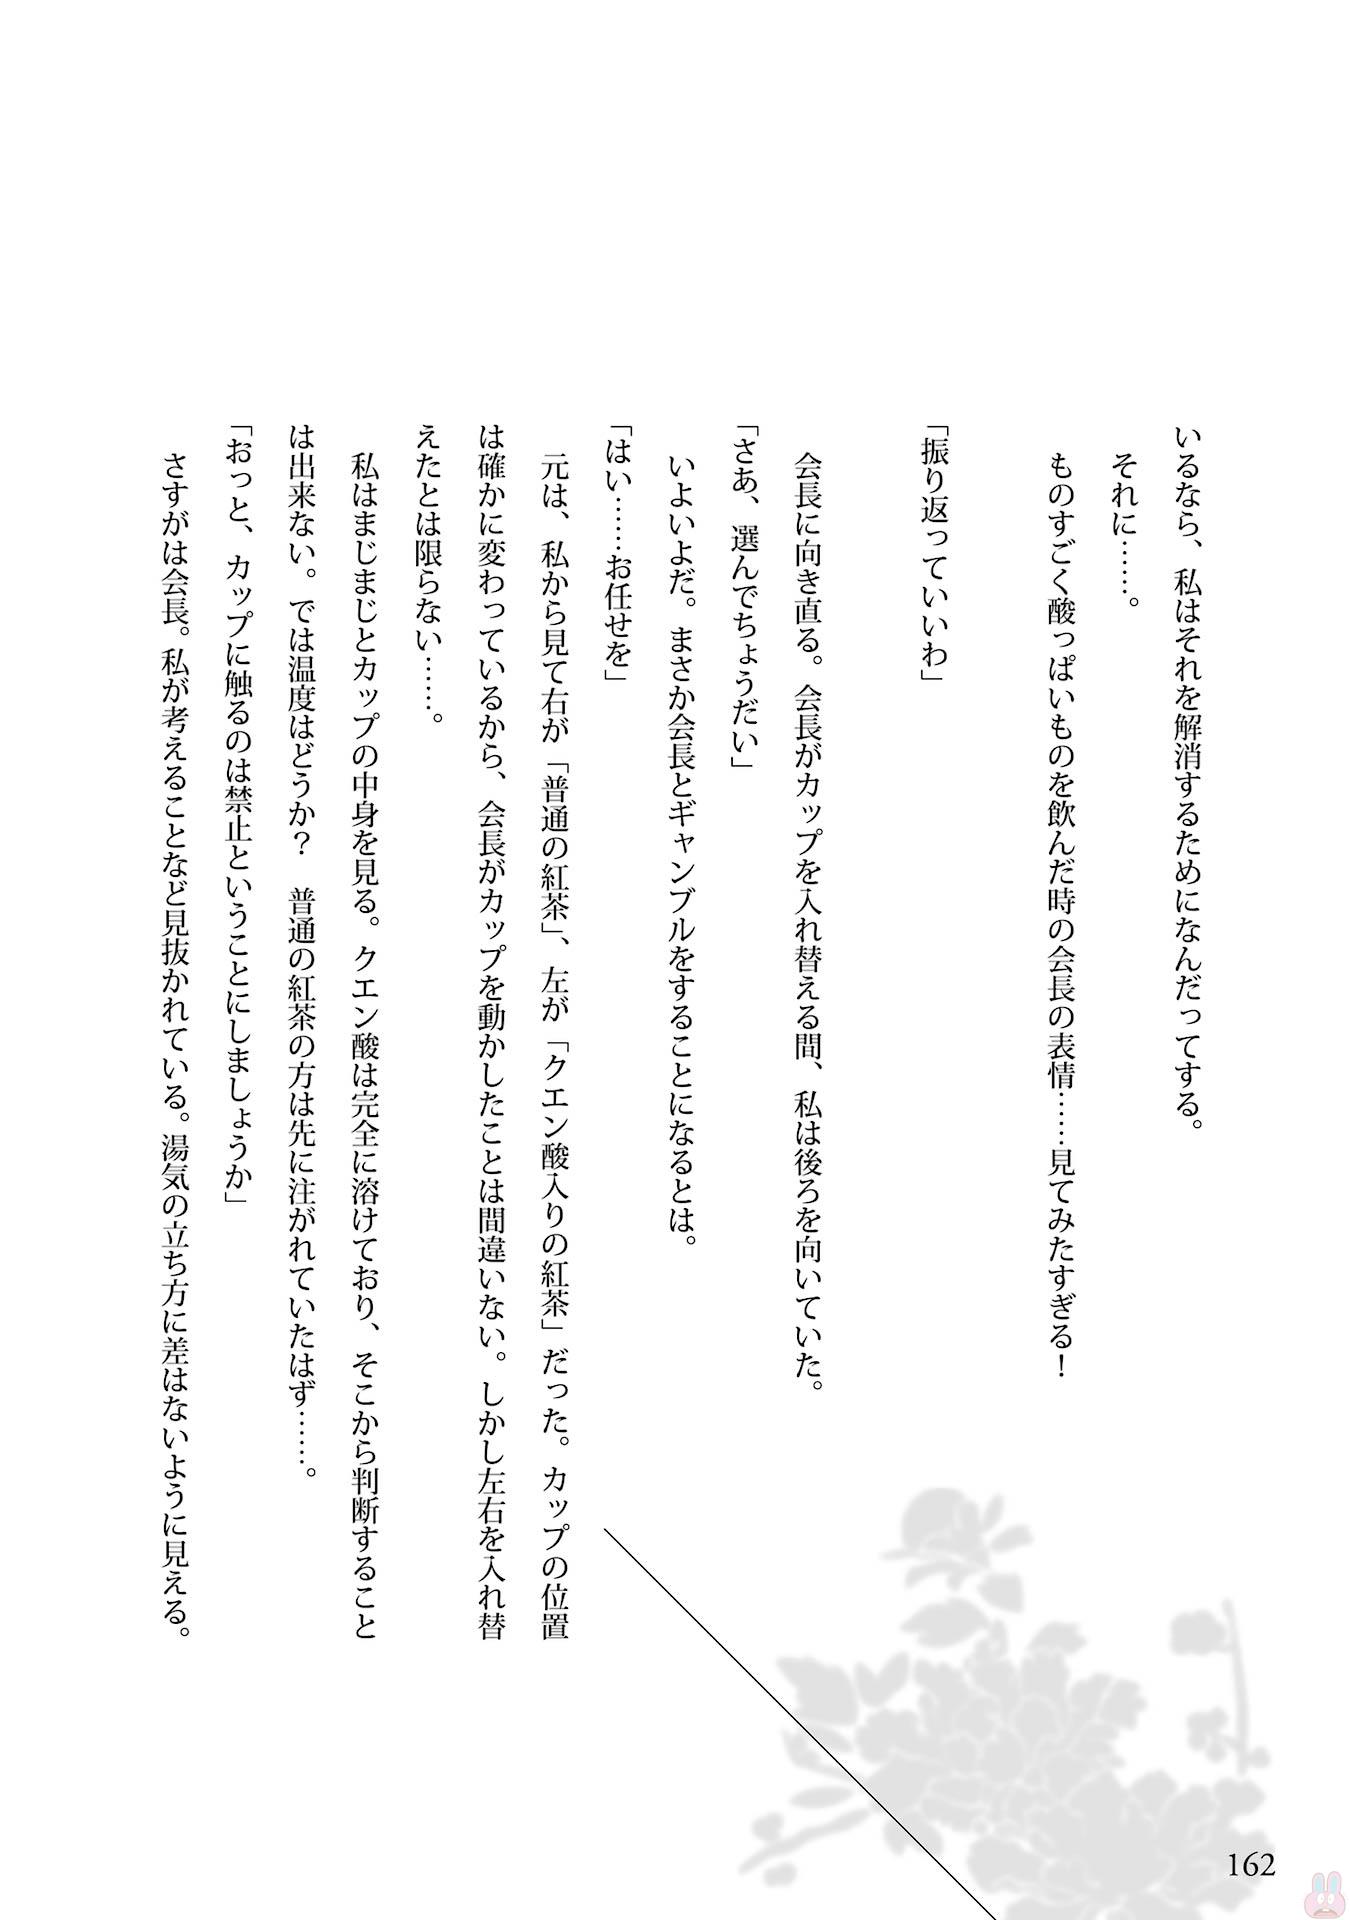 いるなら、私はそれを解消するためになんだってする。
それに……。
ものすごく酸っぱいものを飲んだ時の会長の表情……見てみたすぎる！
「振り返っていいわ」
会長に向き直る。会長がカップを入れ替える間、私は後ろを向いていた。
「さあ、選んでちょうだい」
いよいよだ。まさか会長とギャンブルをすることになるとは。
「はい……お任せを」
元は、私から見て右が「普通の紅茶」、左が「クエン酸入りの紅茶」だった。カップの位置
は確かに変わっているから、会長がカップを動かしたことは間違いない。しかし左右を入れ替
えたとは限らない……。
私はまじまじとカップの中身を見る。クエン酸は完全に溶けており、そこから判断すること
は出来ない。では温度はどうか？　普通の紅茶の方は先に注がれていたはず……。
「おっと、カップに触るのは禁止ということにしましょうか」
さすがは会長。私が考えることなど見抜かれている。湯気の立ち方に差はないように見える。
162